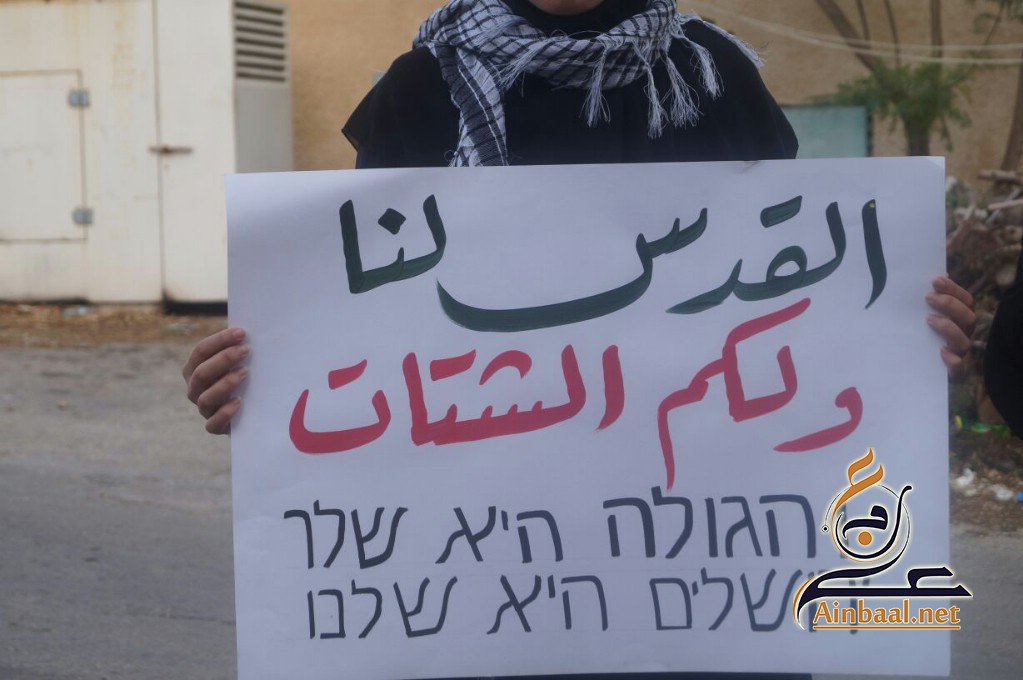 القدس لنا
ولكم الشتات
הגולה היא שלך
היא שלנו
Ainbaal.net